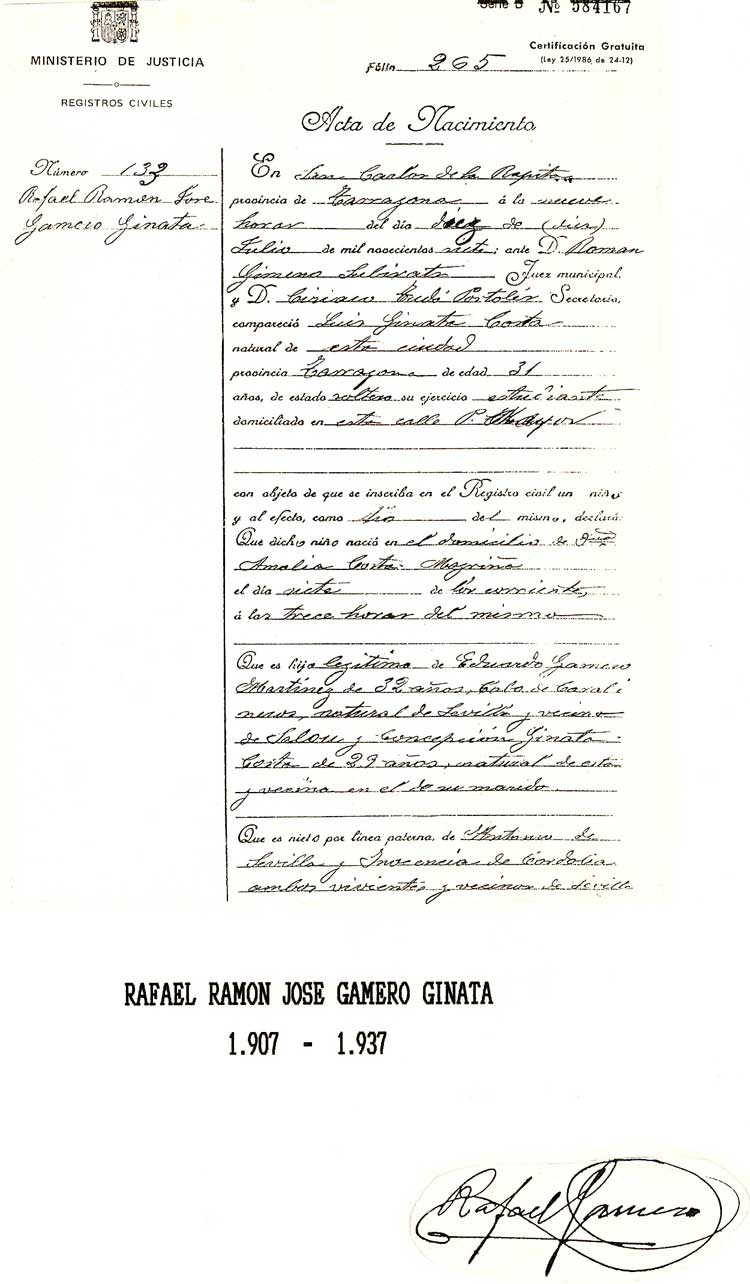 Serie B Nº 984167
MINISTERIO DE JUSTICIA
REGISTROS CIVILES
Certificación Gratuita
(Ley 25/1986, de 24-12)
Fólio 265
Acta de Nacimiento
Número 133
Rafael Ramón Jose
Gamero Ginata
En San Carlos de la Rapita
provincia de Tarragona á la nueve
horas del día diez de (diez)
Julio de mil novecientos siete; ante D. Roman
Gimeno Subirats Juez municipal,
y D. Ciriaco Tudó Portolés Secretario,
compareció Luis Ginata Costa
natural de esta ciudad
provincia Tarragona de edad 31
años, de estado soltero su ejercicio estudiante
domiciliado en esta calle P. Mayor
con objeto de que se inscriba en el Registro civil un niño
y al efecto, como tio del mismo, declaró:
Que dicho niño nació en el domicilio de
Amalia Costa Magriña
el día siete de los corrientes,
á las trece horas del mismo
Que es hijo legítimo de Eduardo Gamero
Martínez de 32 años, Cabo de Carabi
neros, natural de Sevilla y vecino
de Salou y Concepción Ginata
Costa de 29 años, natural de esta
y vecina en el de su marido.
Que es nieto por línea paterna, de Antonio de
Sevilla y Inocencia de Cordoba
ambos vivientes y vecinos de Sevilla
RAFAEL RAMON JOSE GAMERO GINATA
1.907 - 1.937
Rafael Gamero